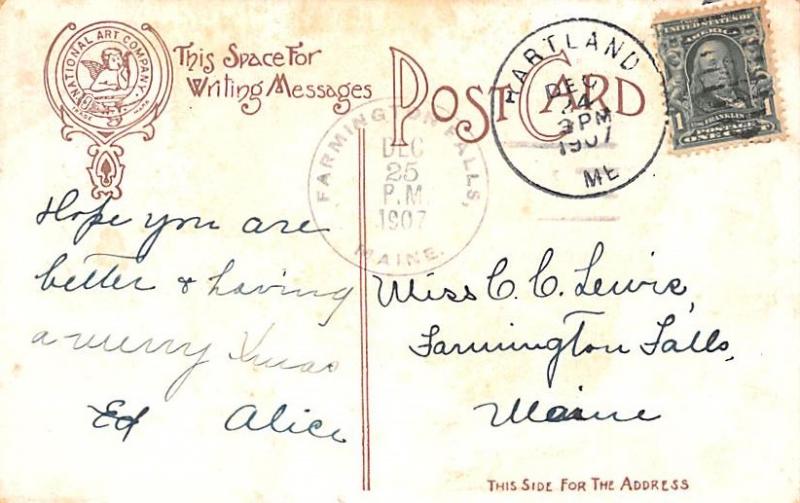 NATIONAL ART COMPANY.
This Space For
Writing Messages
POST CARD
HARTLAND
DEC
24
3 PM
1907
ME
UNITED STATES OF
AMERICA
FRANKLIN
POSTAGE
FARMINGTON FALLS,
DEC
25
P.M.
1907
MAINE.
Hope you are
better & having
a merry Xmas
Ed Alice
Miss C. C. Lewis,
Farmington Falls,
Maine
THIS SIDE FOR THE ADDRESS